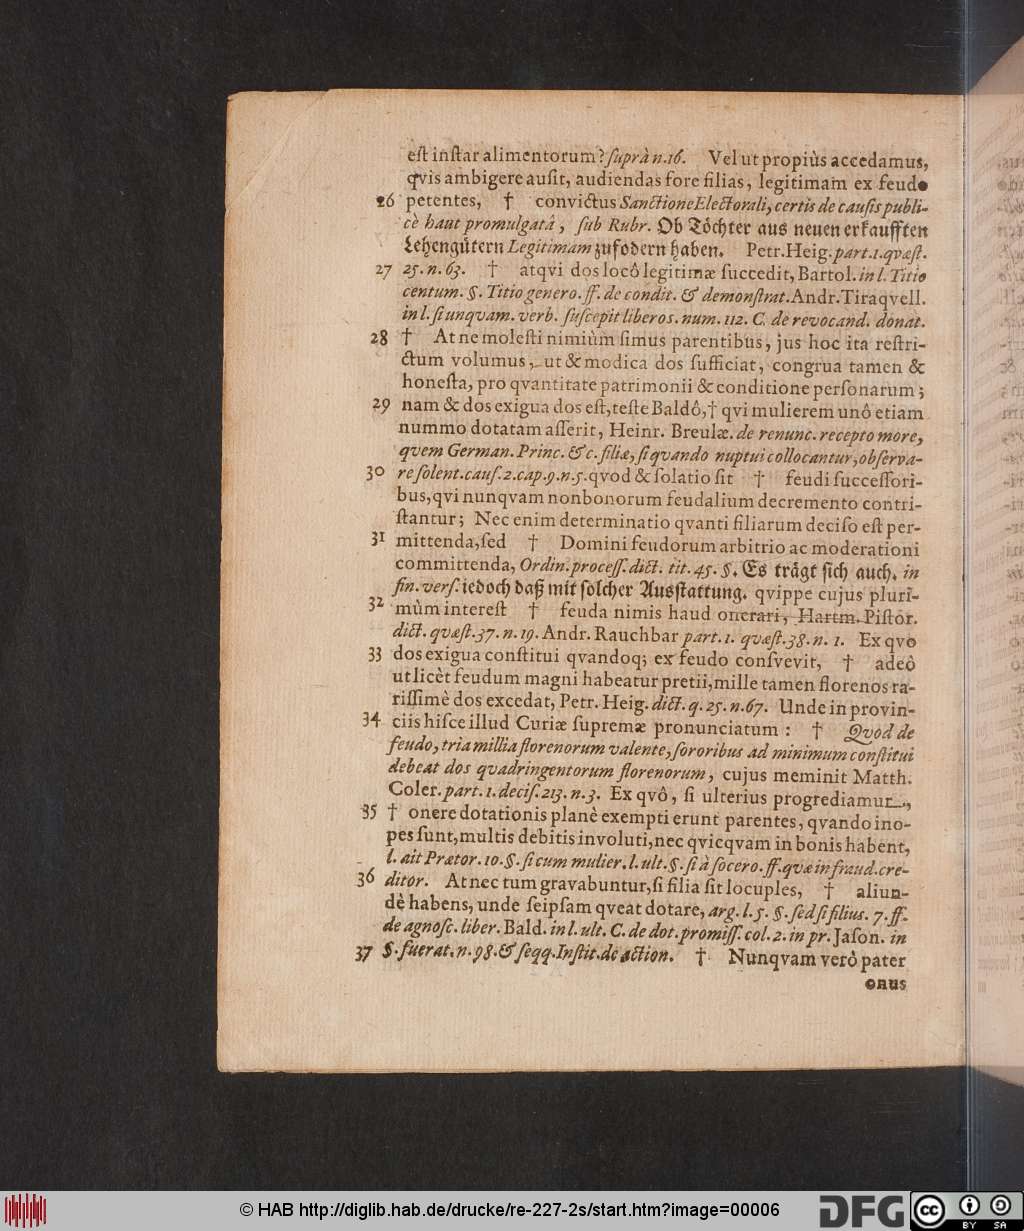 est instar alimentorum? suprà n. 16. Vel ut propiùs accedamus,
qvis ambigere ausit, audiendas fore filias, legitimam ex feudo
26 petentes, † convictus Sanctione Electorali, certis de causis publi-
cè haut promulgatâ, sub Rubr. Ob Töchter aus neuen erkaufften
Lehengütern Legitimam zufodern haben. Petr. Heig. part. 1. qvæst.
27 25. n. 63. † atqvi dos locô legitimæ succedit, Bartol. in l. Titio
centum. §. Titio genero. ff. de condit. & demonstrat. Andr. Tiraqvell.
in l. si unqvam. verb. suscepit liberos. num. 112. C. de revocand. donat.
28 † At ne molesti nimiùm simus parentibus, jus hoc ita restri-
ctum volumus, ut & modica dos sufficiat, congrua tamen &
honesta, pro qvantitate patrimonii & conditione personarum;
29 nam & dos exigua dos est, teste Baldô, † qvi mulierem unô etiam
nummo dotatam asserit, Heinr. Breulæ. de renunc. recepto more,
qvem German. Princ. &c. filiæ, si qvando nuptui collocantur, observa-
30 re solent. caus. 2. cap. 9. n. 5. qvod & solatio sit † feudi successori-
bus, qvi nunqvam non bonorum feudalium decremento contri-
stantur; Nec enim determinatio qvanti filiarum deciso est per-
31 mittenda, sed † Domini feudorum arbitrio ac moderationi
committenda, Ordin. process. dict. tit. 45. §. Es trägt sich auch. in
fin. vers. iedoch daß mit solcher Ausstattung. qvippe cujus pluri-
32 mùm interest † feuda nimis haud onerari, Hartm. Pistor.
dict. qvæst. 37. n. 19. Andr. Rauchbar part. 1. qvæst. 38. n. 1. Ex qvo
33 dos exigua constitui qvandoq; ex feudo consvevit, † adeò
ut licèt feudum magni habeatur pretii, mille tamen florenos ra-
rissimè dos excedat, Petr. Heig. dict. q. 25. n. 67. Unde in provin-
34 ciis hisce illud Curiæ supremæ pronunciatum: † Qvod de
feudo, tria millia florenorum valente, sororibus ad minimum constitui
debeat dos qvadringentorum florenorum, cujus meminit Matth.
Coler. part. 1. decis. 213. n. 3. Ex qvô, si ulterius progrediamur,
35 † onere dotationis planè exempti erunt parentes, qvando ino-
pes sunt, multis debitis involuti, nec qvicqvam in bonis habent,
l. ait Prætor. 10. §. si cum mulier. l. ult. §. si à socero. ff. qvæ in fraud. cre-
36 ditor. At nec tum gravabuntur, si filia sit locuples, † aliun-
dè habens, unde seipsam qveat dotare, arg. l. 5. §. sed si filius. 7. ff.
de agnosc. liber. Bald. in l. ult. C. de dot. promiss. col. 2. in pr. Jason. in
37 §. fuerat. n. 98. & seqq. Instit. de action. † Nunqvam verò pater
onus
© HAB http://diglib.hab.de/drucke/re-227-2s/start.htm?image=00006
DFG
cc
BY SA